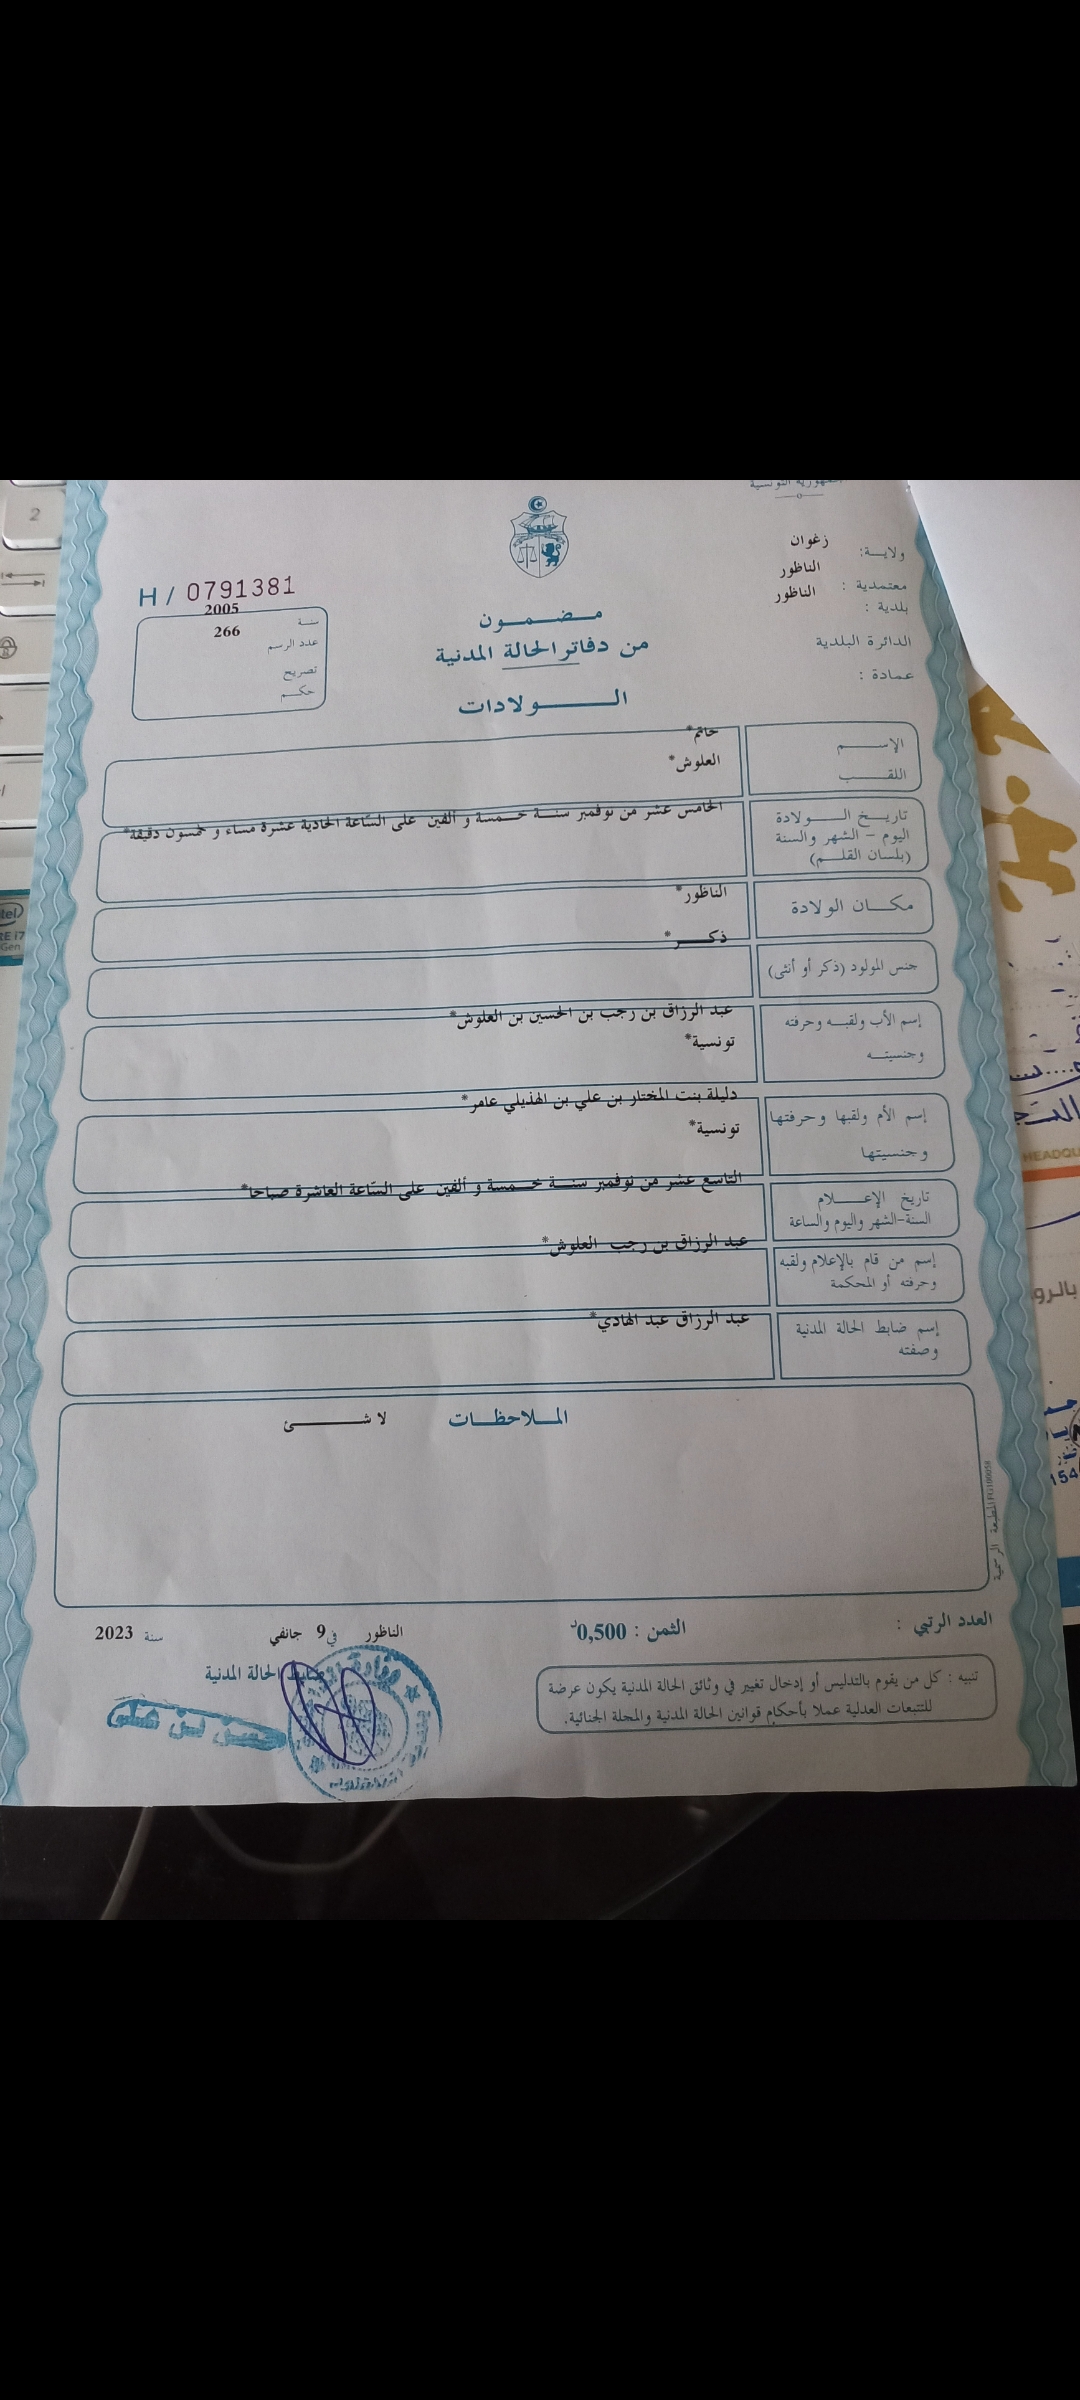 الجمهورية التونسية
ولايـــة: زغوان
معتمدية : الناظور
بلدية : الناظور
الدائرة البلدية
عمادة :
H / 0791381
سنـة 2005
عدد الرسم 266
تصريح
حكـــم
مـــضـــمـــون
من دفاتر الحالة المدنية
الــــــولادات
الإســـــم حاتم*
اللقـــــب العلوش*
تاريـــخ الـــــولادة
اليوم – الشهر والسنة
(بلسان القلـــم)
الخامس عشر من نوفمبر سنـــة خـــمسة و ألفين على السّاعة الحادية عشرة مساء و خمسون دقيقة*
مكـــان الولادة الناظور*
جنس المولود (ذكر أو أنثى) ذكـــــر*
إسم الأب ولقبـــه وحرفته
وجنسيتـــه
عبد الرزاق بن رجب بن الحسين بن العلوش*
تونسية*
إسم الأم ولقبها وحرفتها
وجنسيتها
دليلة بنت المختار بن علي بن الهذيلي عامر*
تونسية*
تاريخ الإعــــــلام
السنة-الشهر واليوم والساعة
التاسع عشر من نوفمبر سنـــة خـــمسة و ألفين على السّاعة العاشرة صباحا*
إسم من قام بالإعلام ولقبه
وحرفته أو المحكمة
عبد الرزاق بن رجب العلوش*
إسم ضابط الحالة المدنية
وصفته
عبد الرزاق عبد الهادي*
المــلاحظـــات لا شـــــــئ
المطبعة الرسمية
العدد الرتبي :
الثمن : 0,500د
الناظور في 9 جانفي سنة 2023
ضابط الحالة المدنية
تنبيه : كل من يقوم بالتدليس أو إدخال تغيير في وثائق الحالة المدنية يكون عرضة
للتتبعات العدلية عملا بأحكام قوانين الحالة المدنية والمجلة الجنائية.